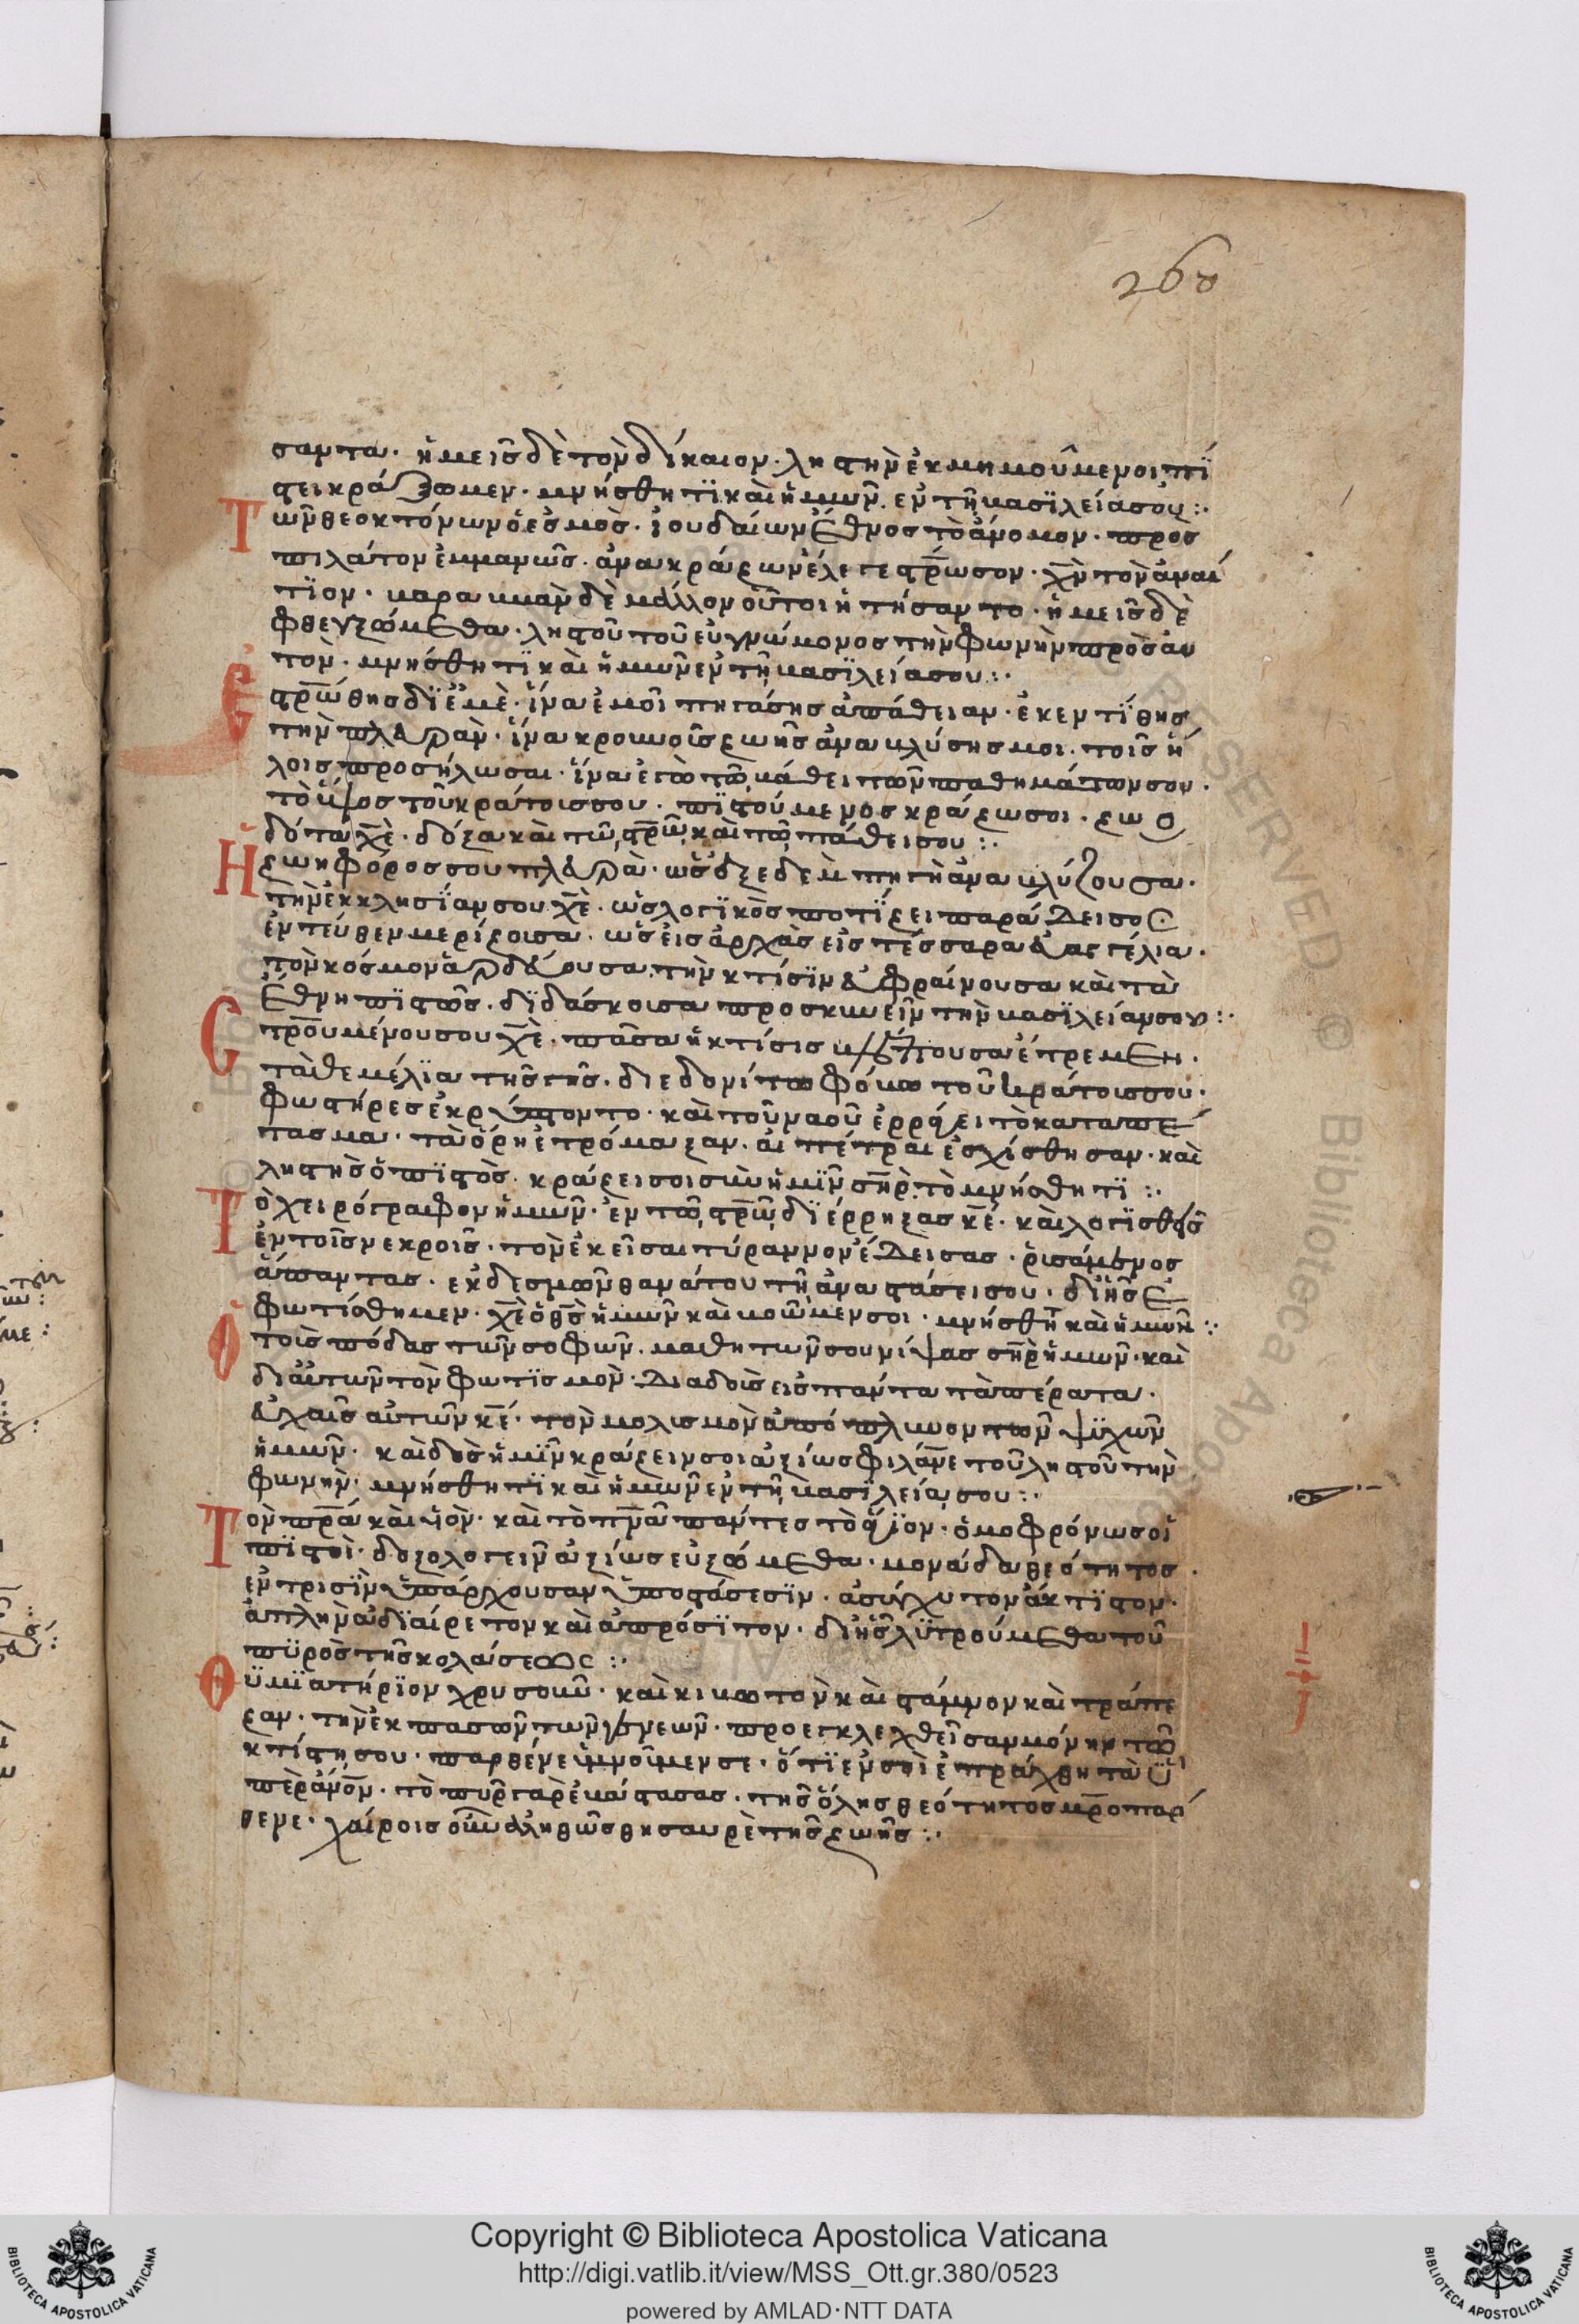 260
σαντα· ἡμεῖς δὲ τὸν δίκαιον· ληστὴν ἐκμημούμενοι πί
στει κράξωμεν· μνήσθητϊ καὶ ἡμῶν ἐν τῆ βασϊλεία σου :·
Τῶν θεοκτόνων ὁ ἐσμὸς· ἰουδαίων ἔθνος τὸ ἄνομον· προς
πιλάτον ἐμμανῶς· ἀνακράζων ἔλεγε στρωσον· χν τὸν ἀναί
τϊον· βαραββὰν δὲ μᾶλλον οὗτοι ἠτήσαντο· ἡμεῖς δὲ
φθεγξώμεθα· ληστοῦ τοῦ εὐγνώμονος τὴν φωνὴν πρὸς αυ
τὸν· μνήσθητϊ καὶ ἡμῶν ἐν τῆ βασϊλεία σου :·
Ἐστρώθης δϊ ἐμὲ· ἵνα ἐμοὶ πηγάσης ἀπάθειαν· ἐκεντίθης
τὴν πλευρὰν· ἵνα κρουνοῖς ζωῆς ἀναβλύσης μοι· τοῖς ἥ
λοις προσήλωσαι· ἵνα ἐγὼ τῶ βάθει τῶν παθημάτων σου·
τὸ ὕψος τοῦ κράτους σου· πϊστούμενος κράζω σοι· ζωο
δότα χε· δόξα καὶ τῶ στρω καὶ τῶ πάθει σου :·
Ἡ ζωηφόρος σου πλευρὰ· ὡς ἐξ ἐδὲμ πηγὴ ἀναβλύζουσα·
τὴν ἐκκλησίαν σου χε· ὡς λογϊκὸς ποτίζει παράδεισος
ἐντεύθεν μερίζουσα· ὡς εἰς ἀρχὰς εἰς τέσσαρα εὐαγγέλια·
τὸν κόσμον ἀρδεύουσα· τὴν κτίσϊν εὐφραίνουσα καὶ τὰ
ἔθνη πϊστῶς· δϊδάσκουσα προσκυνεῖν τὴν βασϊλείαν σου :·
Στρουμένου σου χε· πᾶσα ἡ κτίσις βλέπουσα ἔτρεμεν·
τὰ θεμέλϊα τῆς γῆς· διεδονήτω φόβω τοῦ κράτους σου·
φωστήρες ἐκρύπτοντο· καὶ τοῦ ναοῦ ἐρράγει τὸ καταπέ
τασμα· τὰ ὄρη ἐτρόμαξαν· αἱ πέτραι ἐσχίσθησαν· καὶ
ληστὴς ὁ πϊστὸς· κράζει σοι σὺν ἡμῖν σηρ τὸ μνήσθητϊ :·
Τὸ χειρόγραφον ἡμῶν· ἐν τῶ στρω διέρρηξας κε· καὶ λογϊσθεὶς
ἐν τοῖς νεκροῖς· τὸν ἐκεῖσαι τύραννον ἔδεισας· ῥισάμενος
ἅπαντας· ἐκ δεσμῶν θανάτου τῆ ἀναστάσει σου· δι ἧς ἐ
φωτίσθημεν· χε ὁ θς ἡμῶν καὶ βοῶμεν σοι· μνήσθητ καὶ ἡμῶν :·
Ὁ τοὺς πόδας τῶν σοφῶν· μαθητῶν σου νίψας σηρ ἡμῶν· καὶ
δι αὐτῶν τὸν φωτϊσμὸν· διαδοὺς εἰς πάντα τὰ πέρατα·
εὐχαῖς αὐτῶν κε· τὸν μολυσμὸν ἀπόπλυνον τῶν ψϋχῶν
ἡμῶν· καὶ δὸς ἡμῖν κράζειν σοι ἀξίως φιλανε τοῦ ληστοῦ τὴν
φωνὴν· μνήσθητϊ καὶ ἡμῶν ἐν τῆ βασϊλεία σου :·
Τὸν πρα καὶ υἱὸν· καὶ τὸ πνα πάντες τὸ ἅγϊον· ὁμοφρόνως οἱ
πϊστοὶ· δοξολογεῖν ἀξίως εὐξώμεθα· μονάδα θεότητος·
ἐν τρισῒν ὑπάρχουσαν ὑποστάσεσϊν· ἀσύγχυτον ἄκτϊστον·
ἁπλὴν ἀδϊαίρετον καὶ ἀπρόσϊτον· δι ἧς λϋτρούμεθα τοῦ
πϋρὸς τῆς κολάσεως :·
Θϋμϊατήρϊον χρυσοῦν· καὶ κιβωτὸν καὶ στάμνον καὶ τράπε
ζαν· τὴν ἐκ πασῶν τῶν γενεῶν· προεγκλεχθεῖσαν μόνην τῶ
κτίστη σου· παρθένε ὑμνοῦμεν σε· ὅτϊ ἐν σοὶ ἐπράχθη τὰ ὑ
πὲρ ἄνον· τὸ πῦρ γὰρ ἐβάστασας· τῆς ὅλης θεότητος μρο παρ
θενε· χαίροις οὖν ἀληθῶς θησαυρὲ τῆς ζωῆς :·
Copyright © Biblioteca Apostolica Vaticana
http://digi.vatlib.it/view/MSS_Ott.gr.380/0523
powered by AMLAD·NTT DATA
BIBLIOTECA APOSTOLICA VATICANA
BIBLIOTECA APOSTOLICA VATICANA